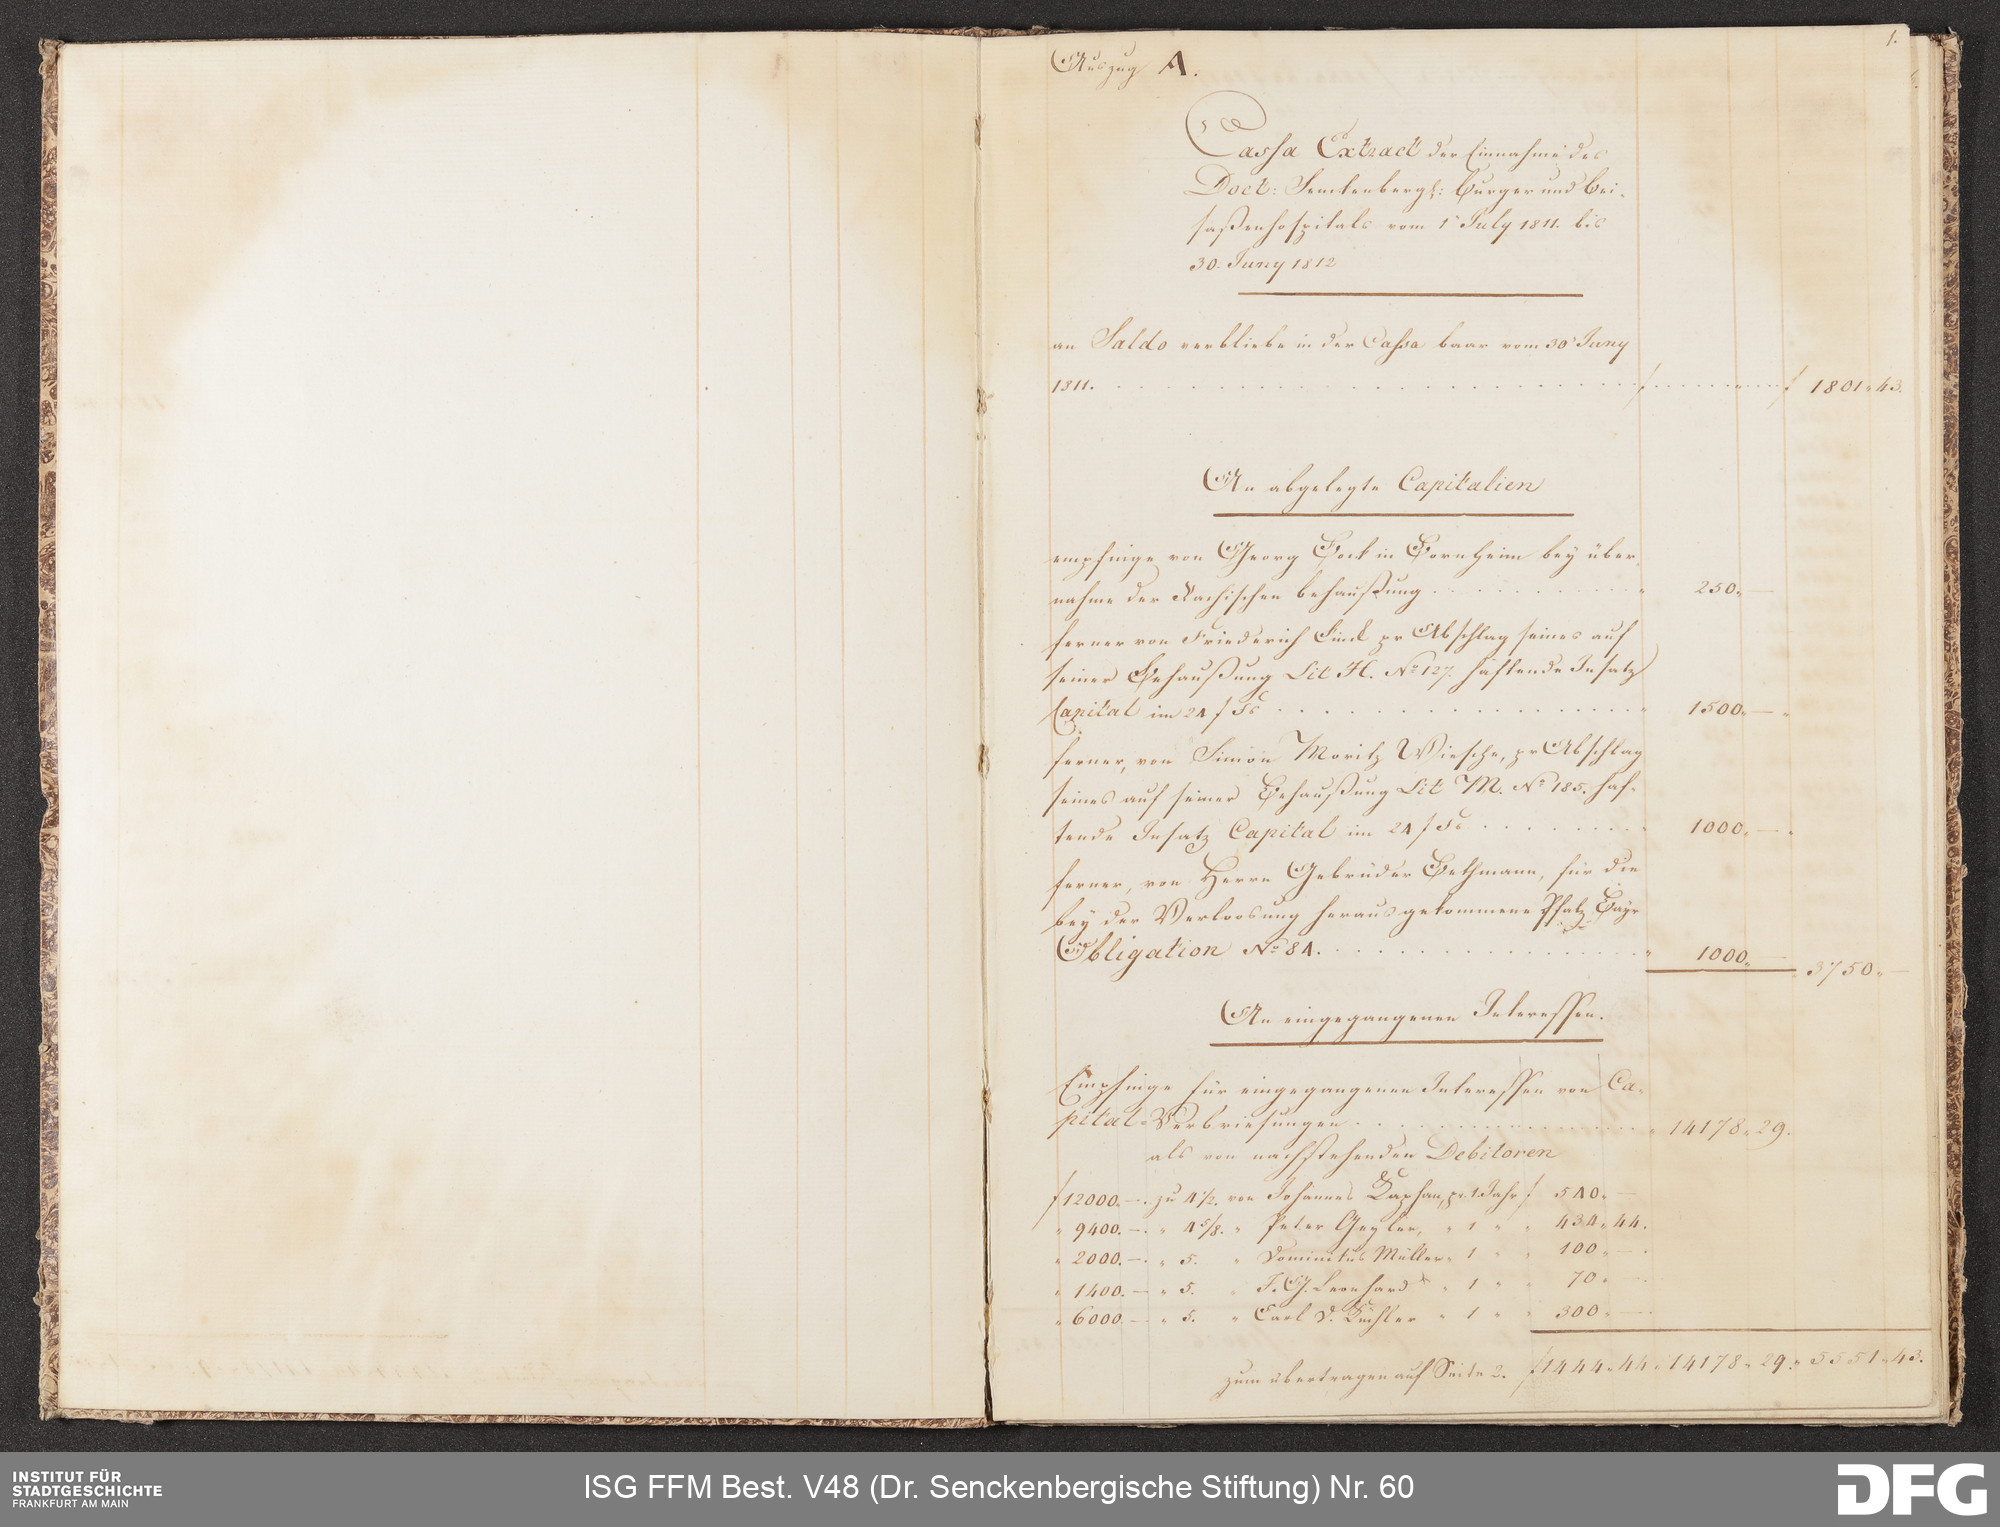 1.
Auszug A.
Cassa Extract der Einnahme des
Doct: Senckenbergs: Burger und Bei-
saßenhospitals vom 1t July 1811. bis
30. Juny 1812
an Saldo verbliebe in der Cassa baar vom 30t Juny
1811. f f 1801 " 43.
An abgelegte Capitalien
empfinge von Georg Bock in Bornheim bey über-
nahme der Rachischen behaußung " 250 " —
ferner von Friederich Finck pr Abschlag seines auf
seiner Behaußung Lit H. No 127. haftende Insatz
Capital im 24 f Fs " 1500 " — "
ferner, von Simon Moritz Wiesche, pr Abschlag
seines auf seiner Behaußung Lit M. No 185. haf-
tende Insatz Capital im 24 f Fs " 1000 " — "
ferner, von Herrn Gebrüder Bethmann, für die
bey der Verloosung heraus gekommene Pfalz Bayr
Obligation No 84. " 1000 " — " 3750 " —
An eingegangenen Interessen.
Empfinge für eingegangenen Interessen von Ca-
pital-Verbriefungen " 14178 " 29.
als von nachstehenden Debitoren
f 12000. —. zu 4 1/2. von Johannes Kaphan, pr. 1. Jahr f 540 " —
" 9400. —. " 4 5/8. " Peter Geyler, " 1 " " 434 " 44.
" 2000. —. " 5. " Dominikus Müller " 1 " " 100 " —.
" 1400. — " 5. " J. G. Leonhard " 1 " " 70 " —.
" 6000. — " 5. " Carl D. Küchler " 1 " " 300 " —.
zum übertragen auf Seite 2. f 1444 " 44 " 14178 " 29 " 5551 " 43.
INSTITUT FÜR
STADTGESCHICHTE
FRANKFURT AM MAIN
ISG FFM Best. V48 (Dr. Senckenbergische Stiftung) Nr. 60
DFG